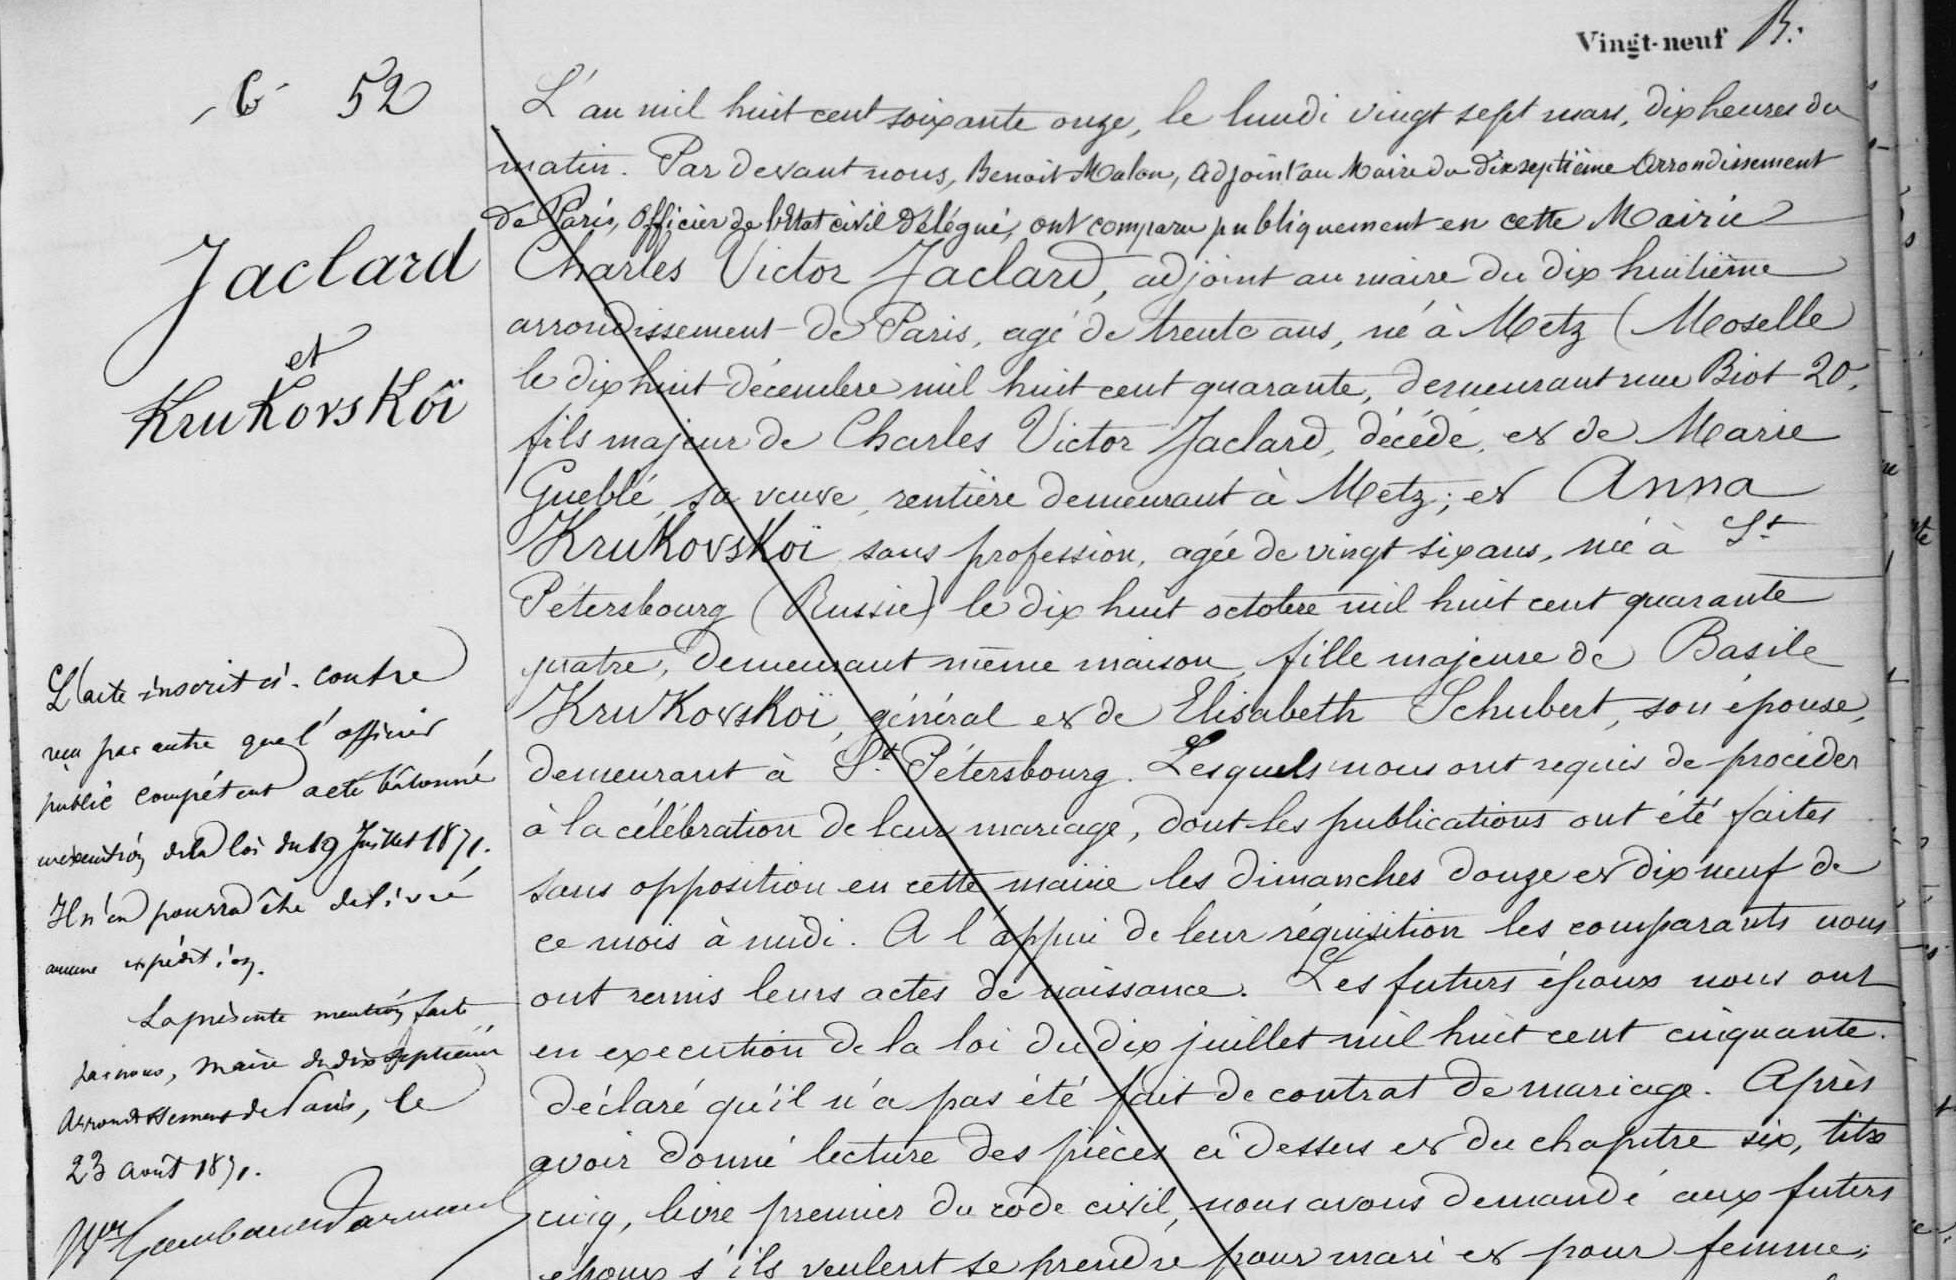 Vingt-neuf B.
52
Jaclard
et
Krukovskoï
L'acte inscrit ci-contre
reçu par autre que l'officier
public compétent acte bâtonné
en exécution de la loi du 19 Juillet 1871.
Il n'en pourra être délivré
aucune expédition.
La présente mention faite
par nous, Maire du dix septième
Arrondissement de Paris, le
23 août 1871.
L'an mil huit cent soixante onze, le lundi vingt sept mars, dix heures du
matin. Par devant nous, Benoit Malon, adjoint au Maire du dix septième Arrondissement
de Paris, Officier de l'Etat civil délégué, ont comparu publiquement en cette Mairie
Charles Victor Jaclard, adjoint au maire du dix huitième
arrondissement de Paris, agé de trente ans, né à Metz (Moselle
le dix huit décembre mil huit cent quarante, demeurant rue Biot 20,
fils majeur de Charles Victor Jaclard, décédé, et de Marie
Gueblé, sa veuve, rentière demeurant à Metz; et Anna
Krukovskoï sans profession, agée de vingt six ans, née à St
Pétersbourg (Russie) le dix huit octobre mil huit cent quarante
quatre, demeurant même maison, fille majeure de Basile
Krukovskoï, général et de Elisabeth Schubert, son épouse,
demeurant à St Pétersbourg. Lesquels nous ont requis de procéder
à la célébration de leur mariage, dont les publications ont été faites
sans opposition en cette mairie les dimanches douze et dix neuf de
ce mois à midi. A l'appui de leur réquisition les comparants nous
ont remis leurs actes de naissance. Les futurs époux nous ont
en execution de la loi du dix juillet mil huit cent cinquante
déclaré qu'il n'a pas été fait de contrat de mariage. Après
avoir donné lecture des pièces ci dessus et du chapitre six, titre
cinq, livre premier du code civil, nous avons demandé aux futurs
epoux s'ils veulent se prendre pour mari et pour femme;